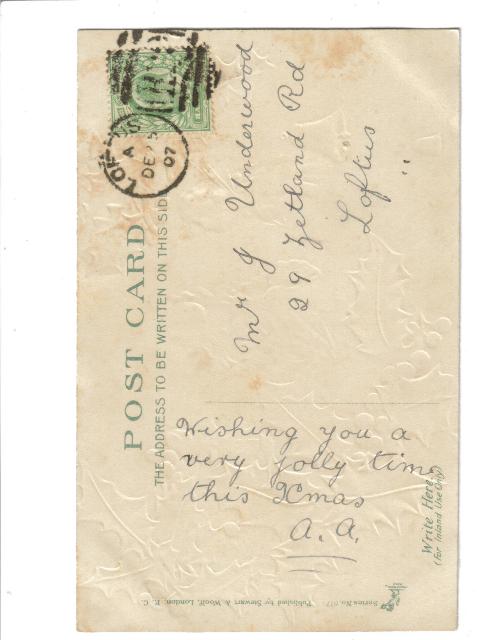 LOFTUS
A
DE 25
07
POST CARD
THE ADDRESS TO BE WRITTEN ON THIS SIDE
Mr J Underwood
29 Zetland Rd
Loftus
Wishing you a
very jolly time
this Xmas
A.A.
Write Here
(For Inland Use Only)
Series No.
Published by Stewart & Woolf, London, E. C.